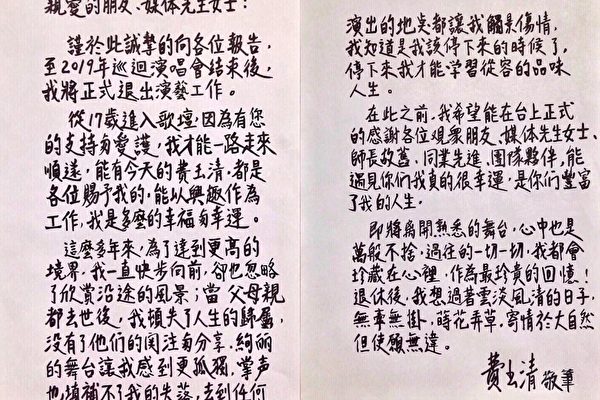 親愛的朋友、媒体先生女士:
謹於此誠摯的向各位報告,
至2019年巡迴演唱會結束後,
我將正式退出演藝工作。
從17歲進入歌壇,因為有您
的支持與愛護,我才能一路走來
順遂,能有今天的費玉清,都是
各位賜予我的,能以興趣作為
工作,我是多麼的幸福與幸運。
這麼多年來,為了達到更高的
境界,我一直快步向前,卻也忽略
了欣賞沿途的風景;當父母親
都去世後,我頓失了人生的歸屬,
沒有了他們的関注與分享,絢麗
的舞台讓我感到更孤獨,掌声
也填補不了我的失落,去到任何
演出的地点都讓我觸景傷情,
我知道是我該停下來的時候了,
停下來我才能学習從容的品味
人生。
在此之前,我希望能在台上正式
的感謝各位观衆朋友、媒体先生女士、
師長故舊、同業先進、团隊夥伴,能
遇見你们我真的很幸運,是你们豐富
了我的人生。
即將离開熟悉的舞台,心中也是
萬般不捨,過往的一切一切,我都會
珍藏在心裡,作為最珍貴的回憶!
退休後,我想過著雲淡風清的日子,
無事無掛,時花弄草,寄情於大自然
但使願無違。
費玉清 敬筆